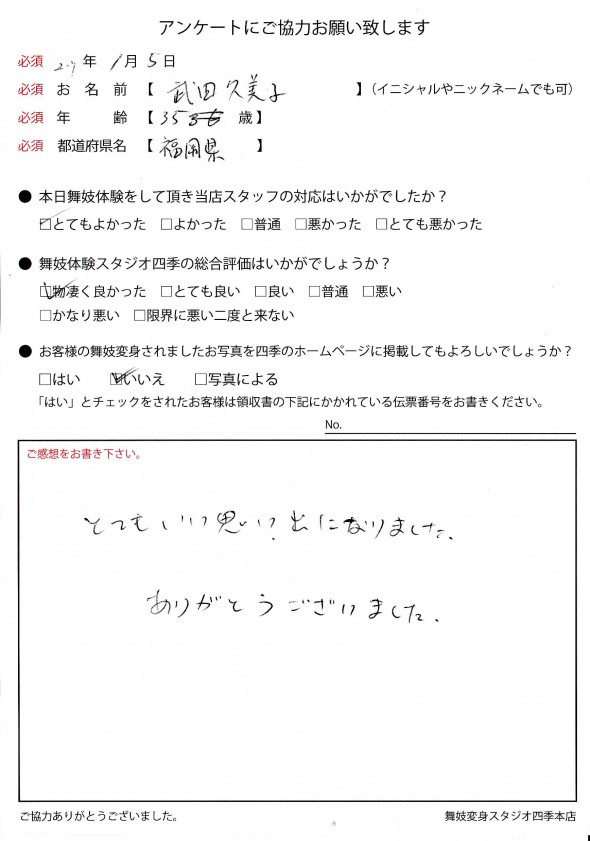 アンケートにご協力お願い致します
必須 27年 1月 5日
必須 お名前【 武田久美子 】（イニシャルやニックネームでも可）
必須 年齢【 35 歳】
必須 都道府県名【 福岡県 】
● 本日舞妓体験をして頂き当店スタッフの対応はいかがでしたか？
☑とてもよかった □よかった □普通 □悪かった □とても悪かった
● 舞妓体験スタジオ四季の総合評価はいかがでしょうか？
☑物凄く良かった □とても良い □良い □普通 □悪い
□かなり悪い □限界に悪い二度と来ない
● お客様の舞妓変身されましたお写真を四季のホームページに掲載してもよろしいでしょうか？
□はい ☑いいえ □写真による
「はい」とチェックをされたお客様は領収書の下記にかかれている伝票番号をお書きください。
No.
ご感想をお書き下さい。
とてもいい思い出になりました。
ありがとうございました。
ご協力ありがとうございました。 舞妓変身スタジオ四季本店